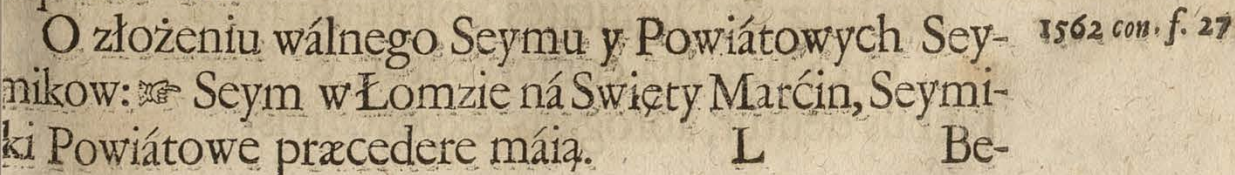 O złożeniu wálnego Seymu y Powiátowych Sey- 1562 con. f. 27
nikow: ☞ Seym w Łomzie ná Swięty Marćin, Seymi-
ki Powiátowe præcedere máią. L Be-